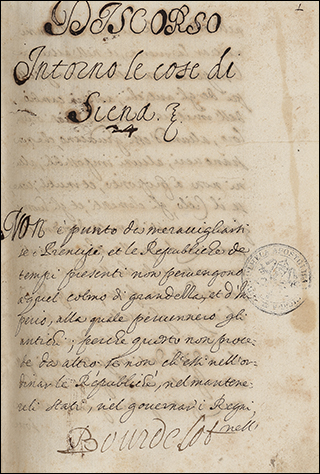 1
DISCORSO
Intorno le cose di
Siena.
Non è punto di meravigliarsi
se i Principi et le Republiche de
tempi presenti non pervengono
à quel colmo di grandezza, et d'Im
perio, alla quale pervennero gli
antichi, perche questo non proce
de da altro se non ch'essi nell'or
dinar le Republiche, nel mantene
re li stati, nel governar i Regni,
nell'
Bourdelot